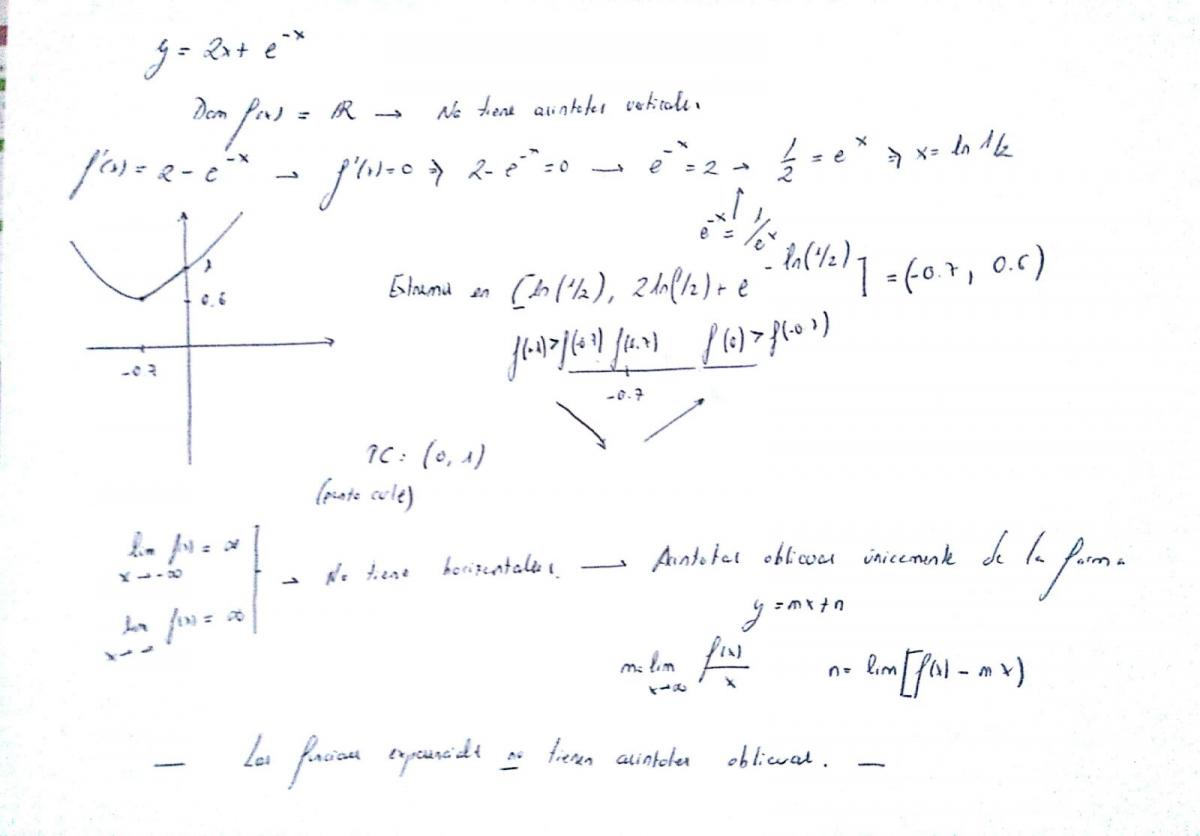 y = 2x + e^-x
Dom f(x) = ℝ → No tiene asintotas verticales.
f'(x) = 2 - e^-x → f'(x) = 0 ⇒ 2 - e^-x = 0 → e^-x = 2 → 1/2 = e^x ⇒ x = ln 1/2
e^-x = 1/e^x
1
0.6
-0.7
Extremo en [ln(1/2), 2ln(1/2) + e^-ln(1/2)] = (-0.7, 0.6)
f(0) > f(-0.7)
-0.7
PC: (0, 1)
(punto corte)
lim f(x) = ∞
x → -∞
lim f(x) = ∞
→ No tiene horizontales. → Asintotas oblicuas únicamente de la forma
y = mx + n
m = lim f(x)/x n = lim [f(x) - mx)
x → ∞
— Las funciones exponenciales no tienen asintotas oblicuas. —